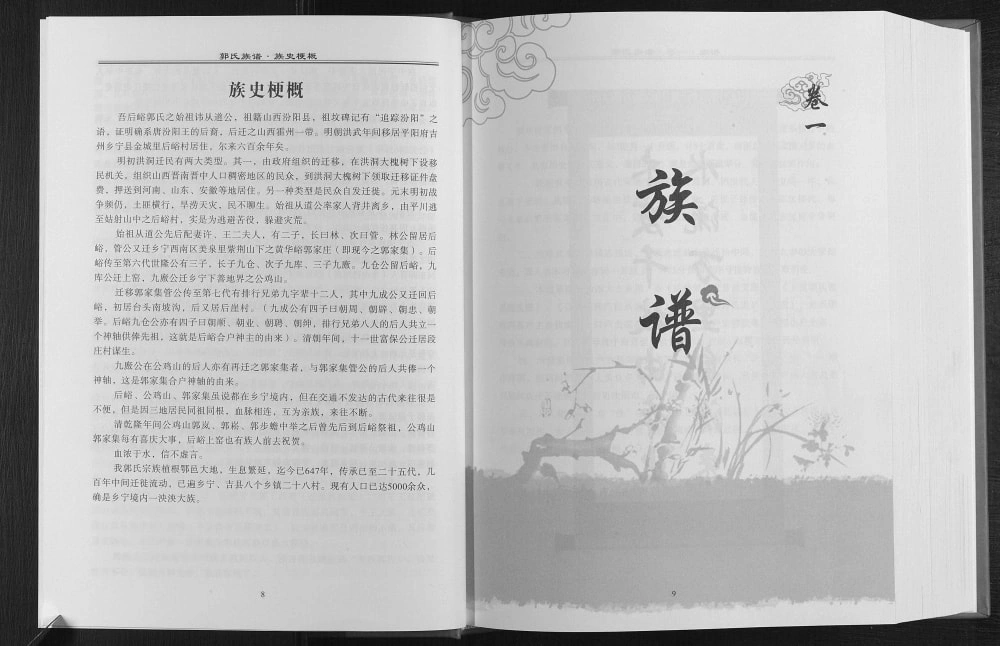 郭氏族谱·族史梗概
族史梗概
吾后峪郭氏之始祖讳从道公，祖籍山西汾阳县，祖坟碑记有“追踪汾阳”之
语，证明确系唐汾阳王的后裔，后迁之山西霍州一带。明朝洪武年间移居平阳府吉
州乡宁县金城里后峪村居住，尔来六百余年矣。
明初洪洞迁民有两大类型。其一，由政府组织的迁移，在洪洞大槐树下设移
民机关，组织山西晋南晋中人口稠密地区的民众，到洪洞大槐树下领取迁移证件盘
费，押送到河南、山东、安徽等地居住。另一种类型是民众自发迁徙。元末明初战
争频仍，土匪横行，旱涝天灾，民不聊生。始祖从道公率家人背井离乡，由平川逃
至姑射山中之后峪村，实是为逃避苦役，躲避灾荒。
始祖从道公先后配妻许、王二夫人，有二子，长曰林、次曰管。林公留居后
峪，管公又迁乡宁西南区美泉里紫荆山下之黄华峪郭家庄（即现今之郭家集）。后
峪传至第六代世隆公有三子，长子九仓、次子九库、三子九廒。九仓公留后峪，九
库公迁上窑，九廒公迁乡宁下善地界之公鸡山。
迁移郭家集管公传至第七代有排行兄弟九字辈十二人，其中九成公又迁回后
峪，初居台头南坡沟，后又居后崖村。（九成公有四子曰朝周、朝辟、朝忠、朝
举。后峪九仓公亦有四子曰朝顺、朝业、朝聘、朝绅，排行兄弟八人的后人共立一
个神轴供俸先祖，这就是后峪合户神主的由来）。清朝年间，十一世富保公迁居段
庄村谋生。
九廒公在公鸡山的后人亦有再迁之郭家集者，与郭家集管公的后人共俸一个
神轴，这是郭家集合户神轴的由来。
后峪、公鸡山、郭家集虽说都在乡宁境内，但在交通不发达的古代来往很是
不便，但是因三地居民同祖同根，血脉相连，互为亲族，来往不断。
清乾隆年间公鸡山郭岚、郭崧、郭步蟾中举之后曾先后到后峪祭祖，公鸡山
郭家集每有喜庆大事，后峪上窑也有族人前去祝贺。
血浓于水，信不虚言。
我郭氏宗族植根鄂邑大地，生息繁延，迄今已647年，传承已至二十五代，几
百年中间迁徙流动，已遍乡宁、吉县八个乡镇二十八村。现有人口已达5000余众，
确是乡宁境内一泱泱大族。
8
卷一
族谱
9